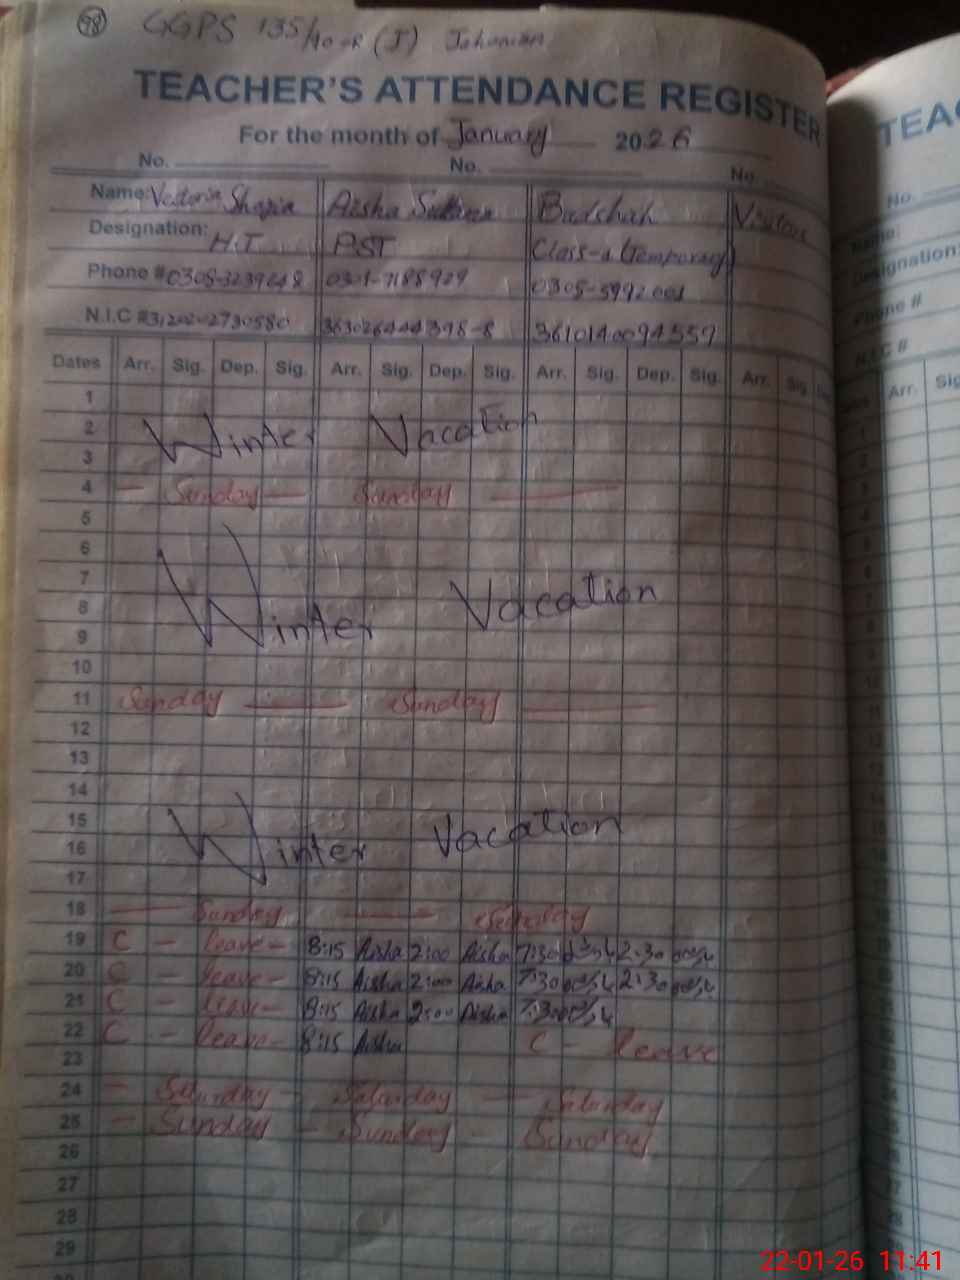 98 GGPS 135/10-R (J) Jahanian
TEACHER'S ATTENDANCE REGISTER
For the month of January 2026
No. No. No.
Name: Shazia Aisha Badshah
Designation: H.T PST Class-4 (Temporary)
Phone # 0305-3239648 0301-7188929 0305-5992001
N.I.C # 3120202730580 363026444398-8 3610140094559
Dates Arr. Sig. Dep. Sig. Arr. Sig. Dep. Sig. Arr. Sig. Dep. Sig. Arr. Sig
1
2 Winter Vacation
3
4 — Sunday — Sunday —
5
6
7
8 Winter Vacation
9
10
11 Sunday — Sunday —
12
13
14
15 Winter Vacation
16
17
18 — Sunday — Sunday
19 C - leave - 8:15 Aisha 2:00 Aisha 7:30 2:30
20 C - leave - 8:15 Aisha 2:00 Aisha 7:30 2:30
21 C - leave - 8:15 Aisha 2:00 Aisha 7:30
22 C - leave - 8:15 Aisha C - leave
23
24 - Saturday - Saturday - Saturday
25 - Sunday - Sunday - Sunday
26
27
28
29
TEAC
No.
Name:
Designation:
Phone #
N.I.C #
Arr. Sig
22-01-26 11:41